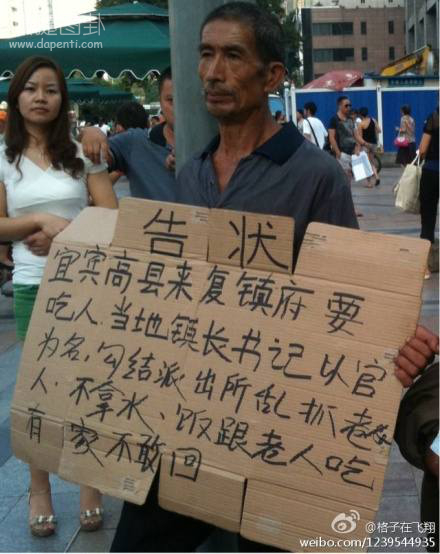 图卦
www.dapenti.com
告状
宜宾高县来复镇府要
吃人.当地镇长书记以官
为名,勾结派出所乱抓老
人.不拿水、饭跟老人吃
有家不敢回
@格子在飞翔
weibo.com/1239544935